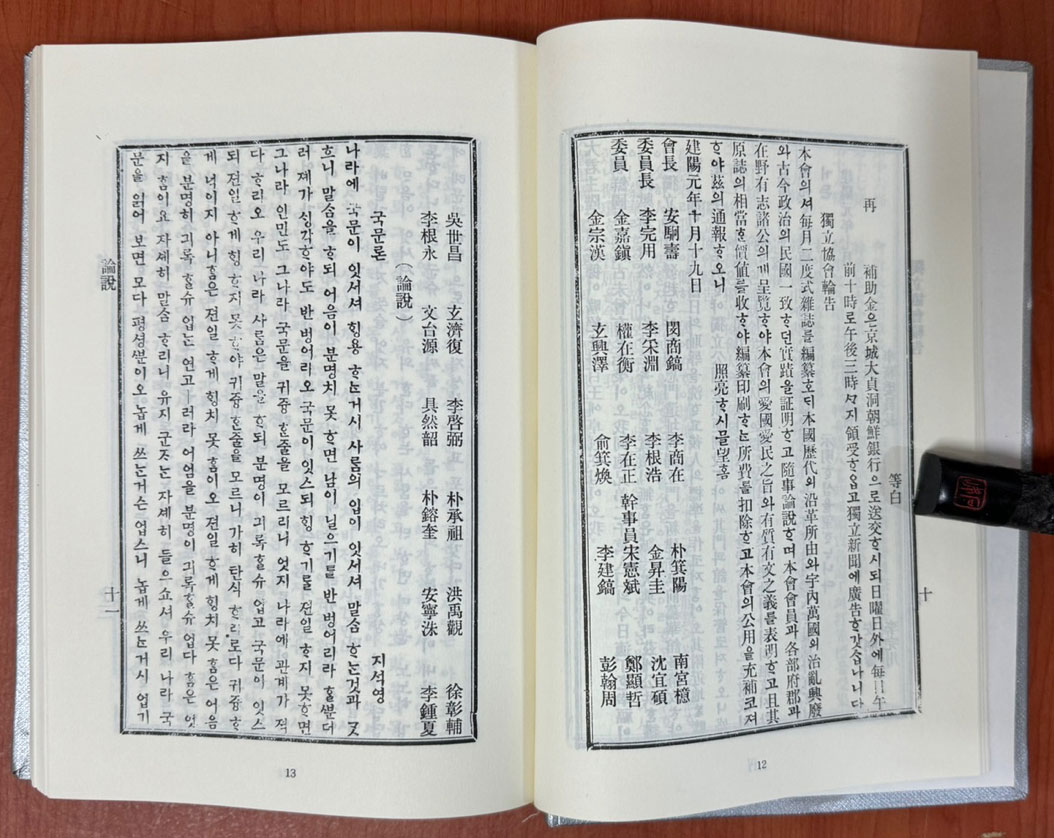 等白
再 補助金은京城大貞洞朝鮮銀行으로送交ᄒᆞ시되日曜日外에每日午
前十時로午後三時ᄭᆞ지領受ᄒᆞ압고獨立新聞에廣告ᄒᆞ갓삽ᄂᆞ니다
獨立協會輪告
本會의셔每月二度式雜誌를編纂ᄒᆞ되本國歷代의沿革所由와宇內萬國의治亂興廢
와古今政治의民國一致ᄒᆞ던實蹟을証明ᄒᆞ고隨事論說ᄒᆞ며本會會員과各部府郡과
在野有志諸公의게呈覽ᄒᆞ야本會의愛國愛民之旨와有質有文之義를表明ᄒᆞ고且其
原誌의相當ᄒᆞᆫ價値를收ᄒᆞ야編纂印刷ᄒᆞᄂᆞᆫ所費를扣除ᄒᆞ고本會의公用을充補코져
ᄒᆞ야玆의通報ᄒᆞ오니 照亮ᄒᆞ시믈望홈
建陽元年十月十九日
會長 安駉壽 閔商鎬 李商在 朴箕陽 南宮檍
委員長 李完用 李采淵 李根浩 金昇圭 沈宜碩
委員 金嘉鎭 權在衡 李在正 幹事員宋憲斌 鄭顯哲
金宗漢 玄興澤 兪箕煥 李建鎬 彭翰周
十
12
吳世昌 玄濟復 李啓弼 朴承祖 洪禹觀 徐彰輔
李根永 文台源 具然韶 朴鎔奎 安寧洙 李鍾夏
(論說)
국문론 지석영
나라에 국문이 잇셔셔 힝용 ᄒᆞᄂᆞᆫ거시 사ᄅᆞᆷ의 입이 잇셔셔 말ᄉᆞᆷ ᄒᆞᄂᆞᆫ것과 ᄀᆞᆺ
흐니 말ᄉᆞᆷ을 ᄒᆞ되 어음이 분명치 못 ᄒᆞ면 남이 닐으기를 반벙어리라 ᄒᆞᆯ분더
러 졔가 ᄉᆡᆼ각ᄒᆞ야도 반벙어리오 국문이 잇스되 힝 ᄒᆞ기를 젼일 ᄒᆞ지 못ᄒᆞ면
그나라 인민도 그나라 국문을 귀즁 ᄒᆞᆫ줄을 모르리니 엇지 나라에 관계가 젹
다 ᄒᆞ리오 우리 나라 사ᄅᆞᆷ은 말을 ᄒᆞ되 분명이 긔록ᄒᆞᆯ슈 업고 국문이 잇스
되 젼일 ᄒᆞ게 힝 ᄒᆞ지 못 ᄒᆞ야 귀즁 ᄒᆞᆫ줄을 모르니 가히 탄식 ᄒᆞ리로다 귀즁 ᄒᆞ
게 넉이지 아니홈은 젼일 ᄒᆞ게 힝치 못 홈이오 젼일 ᄒᆞ게 힝치 못 홈은 어음
을 분명히 긔록 ᄒᆞᆯ슈 업ᄂᆞᆫ 연고 ㅣ러라 어음을 분명이 긔록ᄒᆞᆯ슈 업다 홈은 엇
지 홈이요 자셰히 말ᄉᆞᆷ ᄒᆞ리니 유지 군ᄌᆞᄂᆞᆫ 자셰히 들으쇼셔 우리 나라 국
문을 읽어 보면 모다 평셩ᄲᅮᆫ이오 놉게 쓰ᄂᆞᆫ거슨 업스니 놉게 쓰ᄂᆞᆫ거시 업기
論說
十一
13